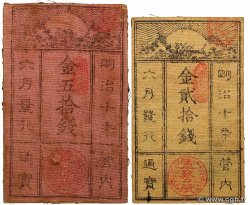 明治十年
管内
金五拾錢
六月發行
通寶
明治十年
管内
金貳拾錢
六月發行
通寶
© www.cgb.fr